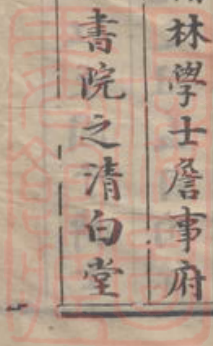 林學士詹事府
書院之清白堂